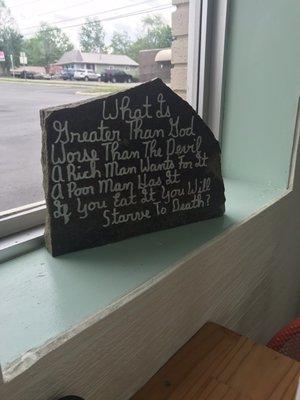 What Is
Greater Than God
Worse Than The Devil
A Rich Man Wants For It
A Poor Man Has It
If You Eat It You Will
Starve To Death?